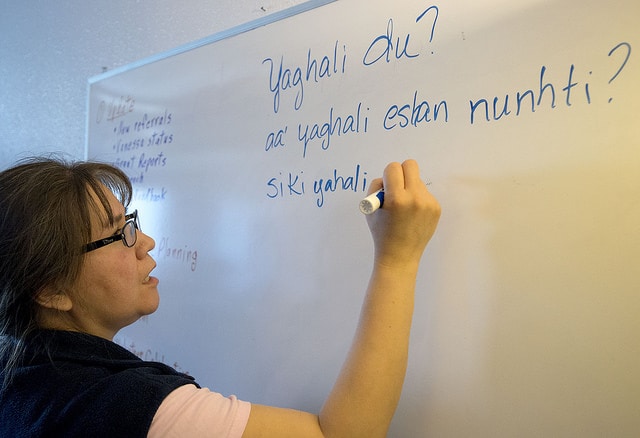 Yaghali du?
aa' yaghali eslan nunhti?
siki yahali
update
• New referrals
• Vanessa status
Great Reports
Planning